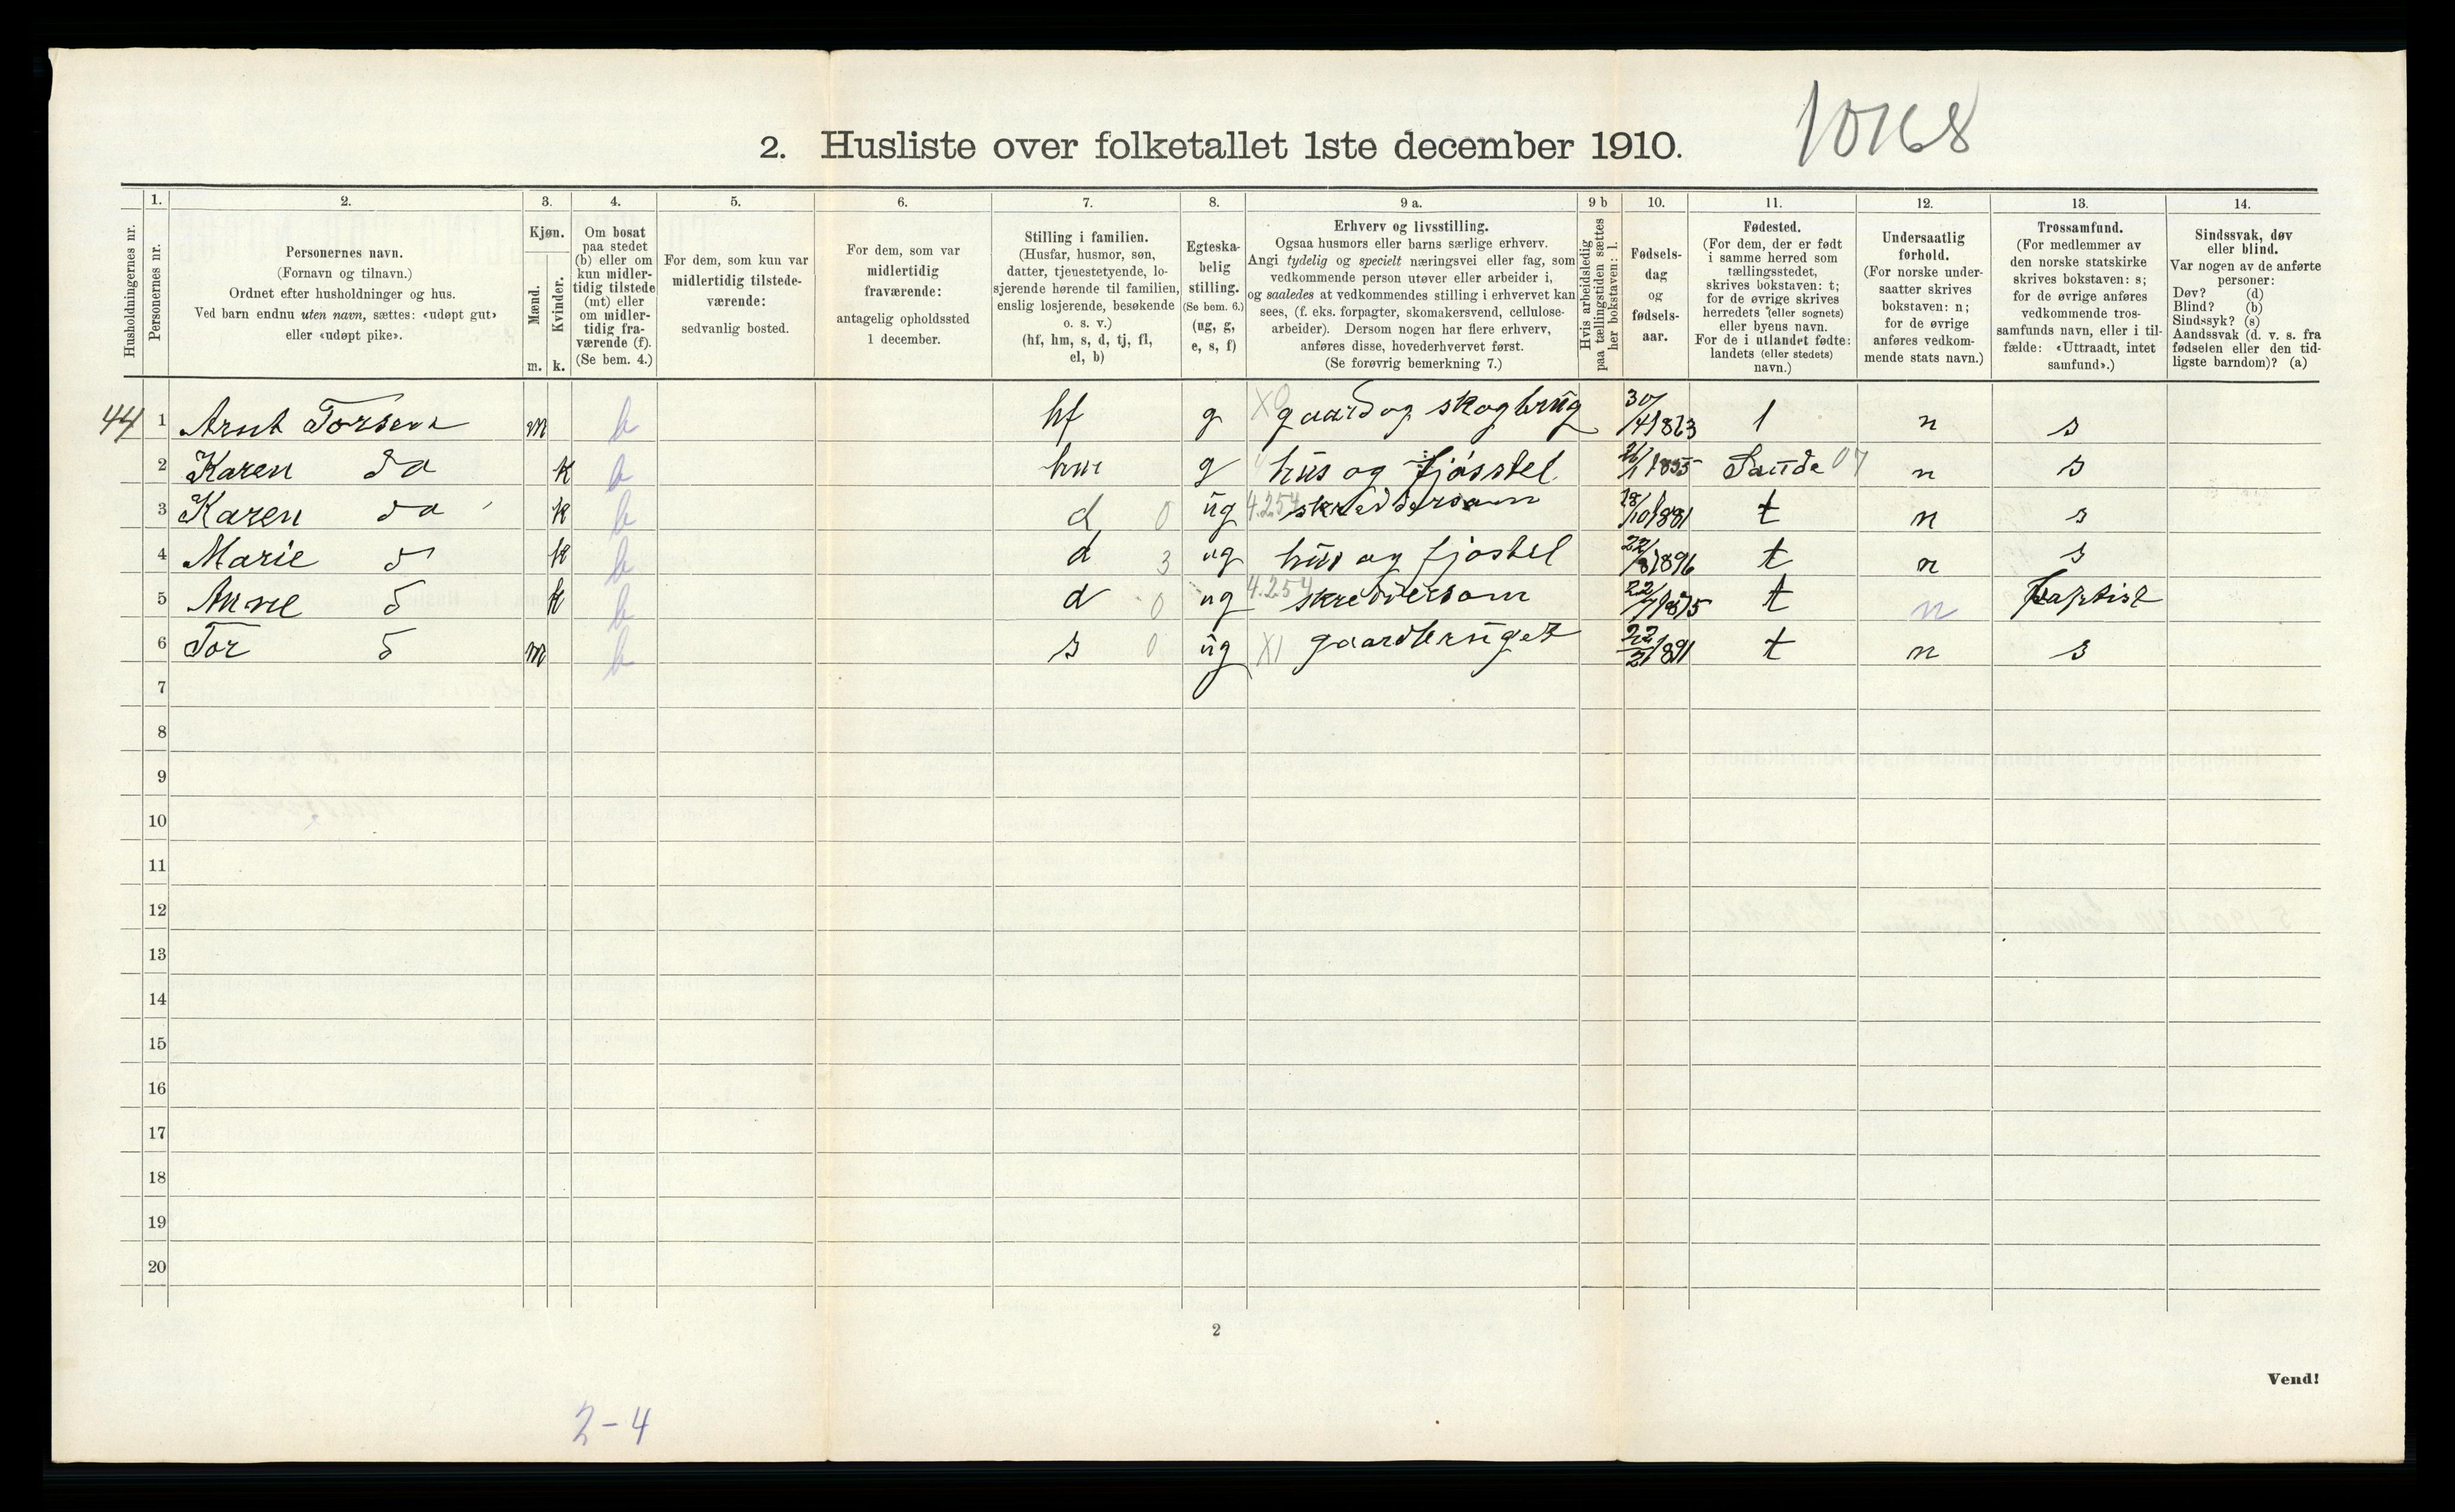 2. Husliste over folketallet 1ste december 1910.
10168
Husholdningernes nr.
1.
Personernes nr.
2.
Personernes navn.
(Fornavn og tilnavn.)
Ordnet efter husholdninger og hus.
Ved barn endnu uten navn, sættes: «udøpt gut»
eller «udøpt pike».
3.
Kjøn.
Mænd.
Kvinder.
m. k.
4.
Om bosat
paa stedet
(b) eller om
kun midler-
tidig tilstede
(mt) eller
om midler-
tidig fra-
værende (f).
(Se bem. 4.)
5.
For dem, som kun var
midlertidig tilstede-
værende:
sedvanlig bosted.
6.
For dem, som var
midlertidig
fraværende:
antagelig opholdssted
1 december.
7.
Stilling i familien.
(Husfar, husmor, søn,
datter, tjenestetyende, lo-
sjerende hørende til familien,
enslig losjerende, besøkende
o. s. v.)
(hf, hm, s, d, tj, fl,
el, b)
8.
Egteska-
belig
stilling.
(Se bem. 6.)
(ug, g,
e, s, f)
9 a.
Erhverv og livsstilling.
Ogsaa husmors eller barns særlige erhverv.
Angi tydelig og specielt næringsvei eller fag, som
vedkommende person utøver eller arbeider i,
og saaledes at vedkommendes stilling i erhvervet kan
sees, (f. eks. forpagter, skomakersvend, cellulose-
arbeider). Dersom nogen har flere erhverv,
anføres disse, hovederhvervet først.
(Se forøvrig bemerkning 7.)
9 b
Hvis arbeidsledig
paa tællingstiden sættes
her bokstaven: l.
10.
Fødsels-
dag
og
fødsels-
aar.
11.
Fødested.
(For dem, der er født
i samme herred som
tællingsstedet,
skrives bokstaven: t;
for de øvrige skrives
herredets (eller sognets)
eller byens navn.
For de i utlandet fødte:
landets (eller stedets)
navn.)
12.
Undersaatlig
forhold.
(For norske under-
saatter skrives
bokstaven: n;
for de øvrige
anføres vedkom-
mende stats navn.)
13.
Trossamfund.
(For medlemmer av
den norske statskirke
skrives bokstaven: s;
for de øvrige anføres
vedkommende tros-
samfunds navn, eller i til-
fælde: «Uttraadt, intet
samfund».)
14.
Sindssvak, døv
eller blind.
Var nogen av de anførte
personer:
Døv? (d)
Blind? (b)
Sindssyk? (s)
Aandssvak (d. v. s. fra
fødselen eller den tid-
ligste barndom)? (a)
44 1 Arnt Torsen m b hf g X0 gaard og skogbrug 30/4 1863 t n s
2 Karen do k b hm g hus og fjösstel 1855 Saude 07 n s
3 Karen do k b d 0 ug 4.254 skreddersöm 18/10 1881 t n s
4 Marie do k b d 3 ug hus og fjostel 22/8 1896 t n s
5 Anne do k b d 0 ug 4.254 skreddersom 22/7 1875 t n Baptist
6 Tor do m b s 0 ug X1 gaardbruget 22/2 1891 t n s
7
8
9
10
11
12
13
14
15
16
17
18
19
20
2
Vend!
2-4